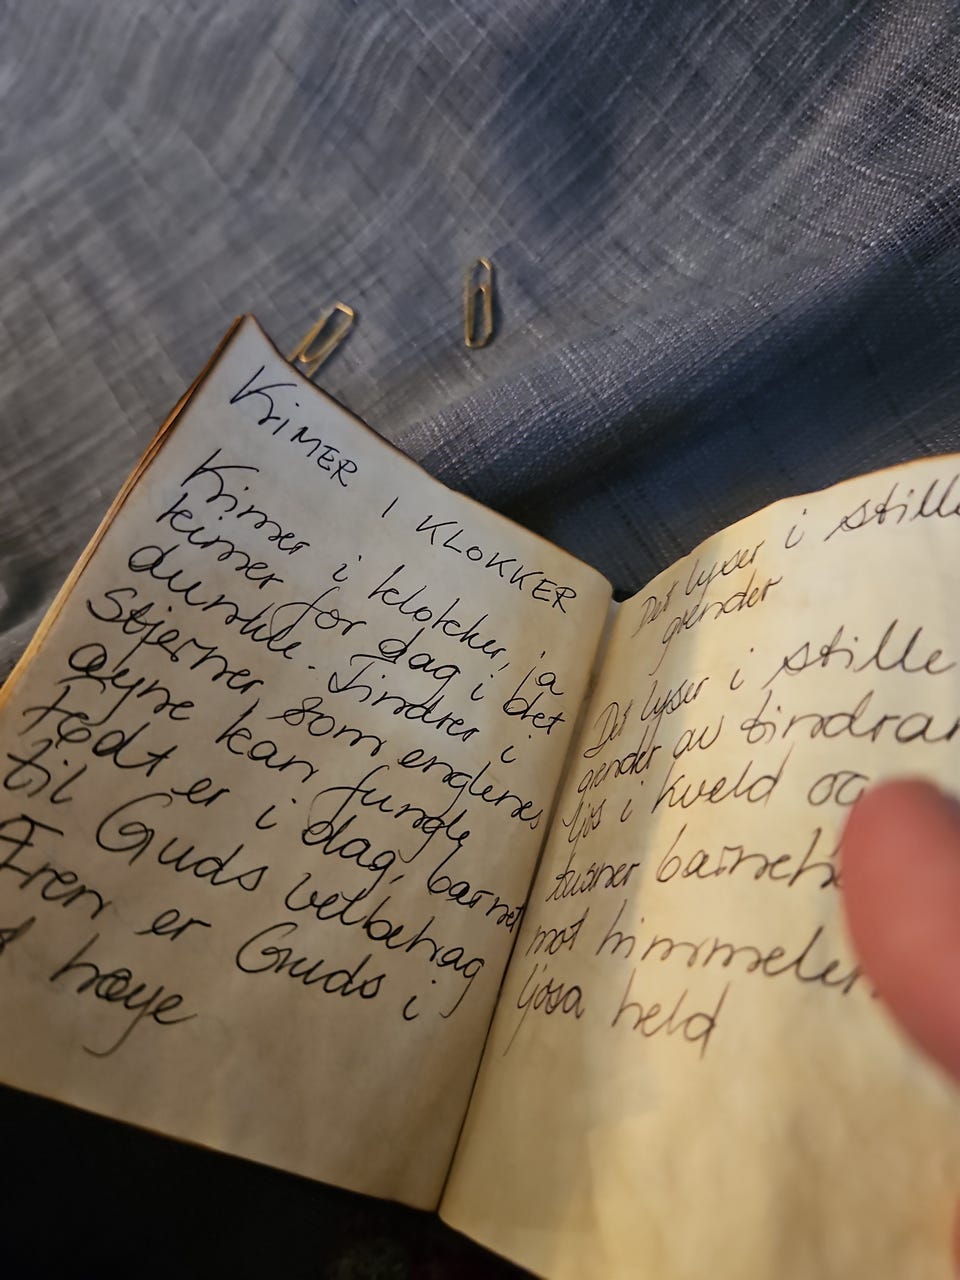 KIMER I KLOKKER
Kimer i klokker, ja
kimer før dag i det
dunkle. Tindrer i
Stjerner, som englenes
øyne kan funkle
Født er i dag, barnet
til Guds velbehag
Æren er Guds i
høye
Det lyser i stille
grender
Det lyser i stille
grender av tindran
ljos i kveld og
tusner barneh
mot himmelen
ljosa held